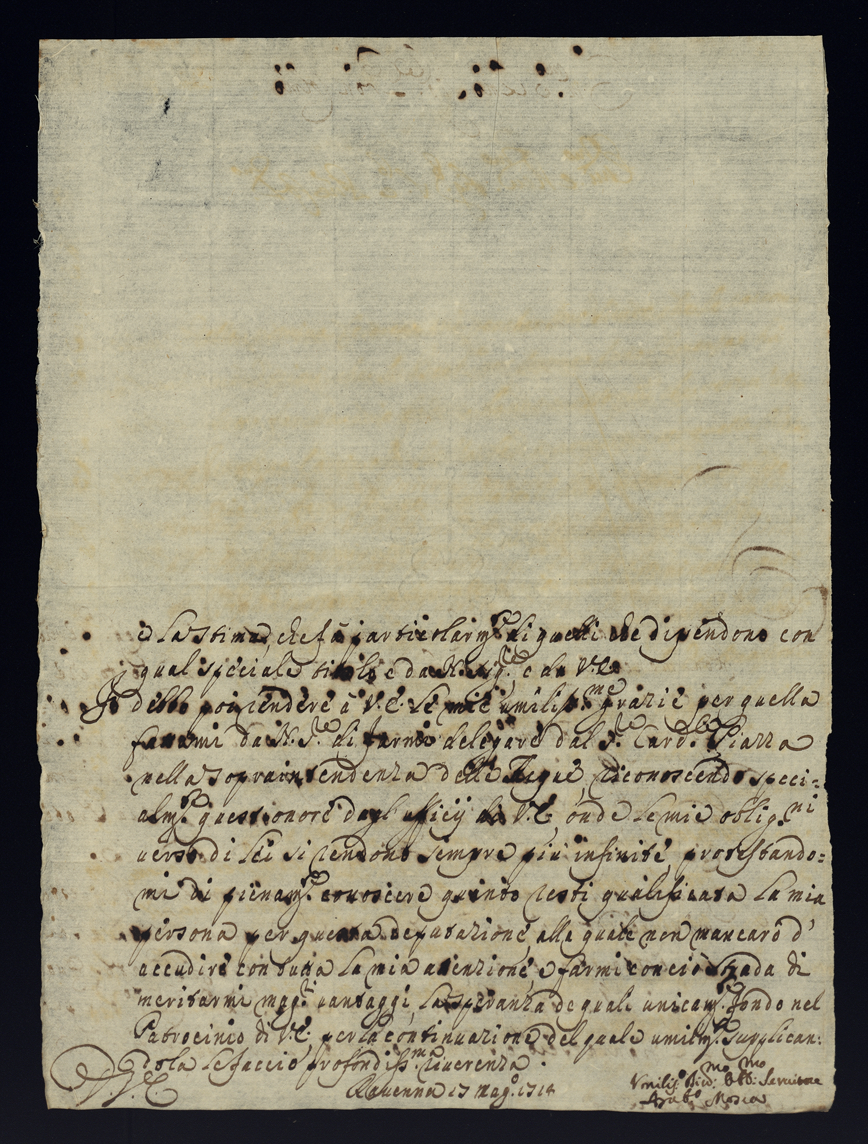 e La stima, che fà particolarm.te di quelli che dipendono con
qual speciale titolo e da N. Sig.re e da V.E.
Io debbo poi rendere à V.E. le mie umiliss.me grazie per quella
fattami da N. S.re di farmi delegare dal S.r Card.le Piazza
nella sopraintendenza delle Acque, riconoscendo speci=
alm.te quest'onore dagl'ufficij di V.E. onde le mie oblig.ni
verso di Lei si rendono sempre più infinite protestando=
mi di pienam.te conoscere quanto resti qualificata La mia
persona per questa deputazione, alla quale non mancarò d'
accudire con tutta La mia attenzione, e farmi con ciò strada di
meritarmi magg.ri vantaggi, La speranza de quali unicam.te fondo nel
Patrocinio di V.E. per la continuazione del quale umilm.te supplican:
dola Le faccio profondiss.ma riverenza.
D. V. E.
Ravenna 17 mag.o 1714
Vmilis.mo Div.mo Obb. Servitore
Agab.o Mosca